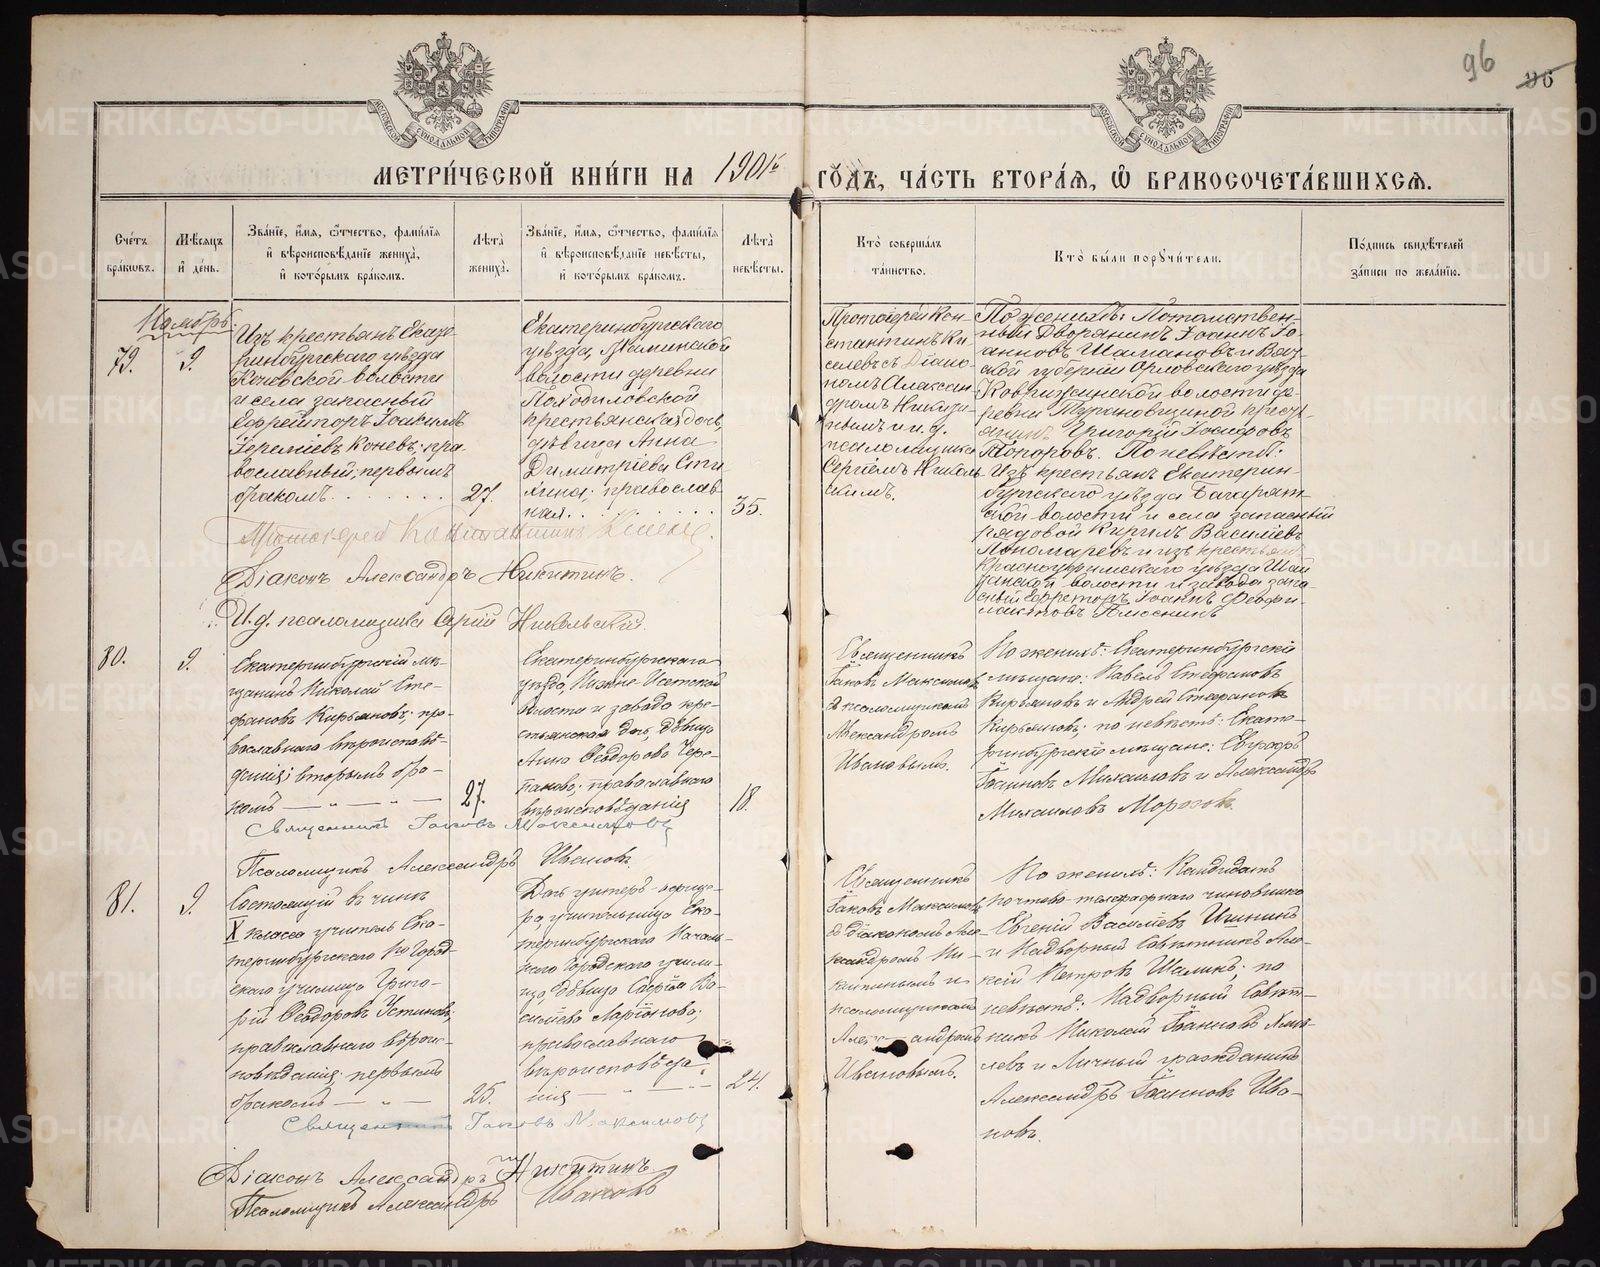 96
МЕТРИ́ЧЕСКОЙ КНИ́ГИ НА 1901й ГО́ДЪ, ЧА́СТЬ ВТОРА́Я, Ѡ БРАКОСОЧЕТА́ВШИХСЯ.
Сче́тъ бра́ковъ.
Мѣ́сяцъ и҆ де́нь.
Зва́нїе, и҆́мя, ѻ҆́тчество, фами́лїя и҆ вѣроисповѣ́данїе жениха̀, и҆ кото́рымъ бра́комъ.
Лѣта̀ жениха̀.
Зва́нїе, и҆́мя, ѻ҆́тчество, фами́лїя и҆ вѣроисповѣ́данїе невѣ́сты, и҆ кото́рымъ бра́комъ.
Лѣта̀ невѣ́сты.
Кто̀ соверша́лъ та́инство.
Кто̀ бы́ли порꙋчи́тели.
По́дпись свидѣ́телей за́писи по жела́нїю.
Ноябрь.
79.
9.
Изъ крестьянъ Екате-
ринбургскаго уѣзда
Коневской волости
и села запасный
Ефрейторъ Іоакимъ
Іереміевъ Коневъ; пра-
вославный; первымъ
бракомъ
27.
Екатеринбургскаго
уѣзда
волости деревни
крестьянская дочь,
дѣвица Анна
Димитріева
православ-
ная
35.
Протоіерей Кон-
стантинъ Ки-
селевъ съ Діако-
номъ Алексан-
дромъ Никити-
нымъ и и.д.
псаломщика
Сергіемъ Николь-
скимъ.
По женихѣ: Потомствен-
ный Дворянинъ Іоаннъ Іо-
анновъ Шамановъ и Вят-
ской губерніи Орловскаго уѣзда
волости де-
ревни кресть-
янинъ Григорій Іосифовъ
Топоровъ. По невѣстѣ:
Изъ крестьянъ Екатерин-
бургскаго уѣзда Багаряк-
ской волости и села запасный
рядовой Кирилъ Василіевъ
Пономаревъ и изъ крестьянъ
Красноуфимскаго уѣзда Шай-
танской волости и завода запа-
сный Ефрейторъ Іоаннъ Феофи-
лактовъ
Протоіерей Константинъ Киселевъ.
Діаконъ Александръ Никитинъ.
И.д. псаломщика Сергій Никольскій.
80.
9.
Екатеринбургскій мѣ-
щанинъ Николай Сте-
фановъ Кирьяновъ; пра-
вославнаго вѣроисповѣ-
данія; вторымъ бра-
комъ
27.
Екатеринбургскаго
уѣзда, Нижне-Исетской
волости и завода кре-
стьянская дочь, дѣвица
Анна Ѳеодорова Чере-
панова; православнаго
вѣроисповѣданія
18.
Священникъ
Іаковъ Максимовъ
съ псаломщикомъ
Александромъ
Ивановымъ.
По женихѣ: Екатеринбургскіе
мѣщане: Павелъ Стефановъ
Кирьяновъ и Андрей Стефановъ
Кирьяновъ; по невѣстѣ: Екате-
ринбургскіе мѣщане: Евграфъ
Іоанновъ Михаиловъ и Александръ
Михаиловъ Морозовъ
Священникъ Іаковъ Максимовъ
Псаломщикъ Александръ Ивановъ
81.
9.
Состоящій въ чинѣ
X класса учитель Ека-
теринбургскаго 1го Город-
скаго училища Григо-
рій Ѳеодоровъ Устиновъ;
православнаго вѣроис-
повѣданія; первымъ
бракомъ
25.
Дочь унтеръ-офице-
ра, учительница Ека-
теринбургскаго Началь-
наго Городскаго учили-
ща, дѣвица Софія Ва-
силіева Ларіонова;
православнаго
вѣроисповѣда-
нія
24.
Священникъ
Іаковъ Максимовъ
съ діакономъ Але-
ксандромъ Ни-
китинымъ и
псаломщикомъ
Александромъ
Ивановымъ.
По женихѣ: Кандидатъ
почтово-телеграфнаго чиновника
Евгеній Василіевъ
и Надворный Совѣтникъ Але-
ксій Петровъ Шалинъ; по
невѣстѣ: Надворный Совѣт-
никъ Николай Іоанновъ
левъ и Личный гражданинъ
Александръ Іоанновъ Ива-
новъ.
Священникъ Іаковъ Максимовъ
Діаконъ Александръ Никитинъ.
Псаломщикъ Александръ Ивановъ
METRIKI.GASO-URAL.RU